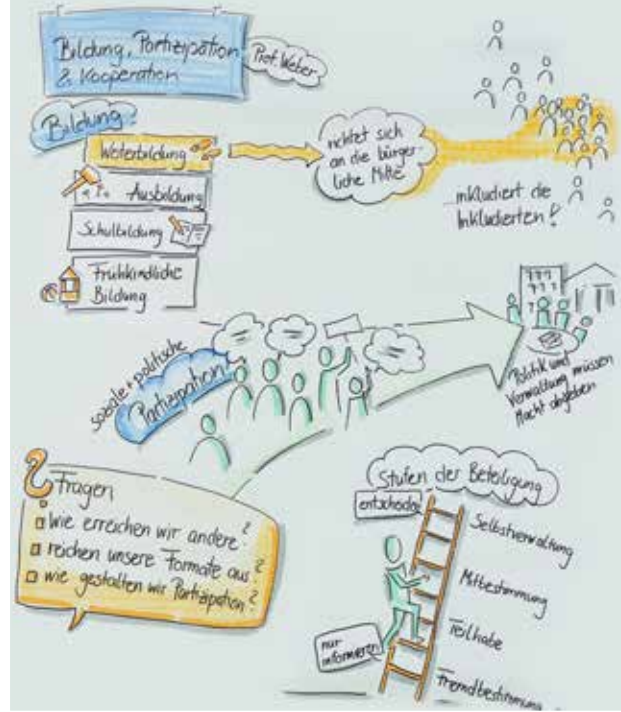 Bildung, Partizipation
& Kooperation
Prof. Weber
Bildung!
Weiterbildung
Ausbildung
Schulbildung
Frühkindliche
Bildung
richtet sich
an die bürger-
liche Mitte
...inkludiert die
Inkludierten!
soziale + politische
Partizipation
Politik und
Verwaltung müssen
Macht abgeben
? Fragen
wie erreichen wir andere?
reichen unsere Formate aus?
wie gestalten wir Partizipation?
Stufen der Beteiligung
Selbstverwaltung
Mitbestimmung
Teilhabe
nur
informieren
Fremdbestimmung